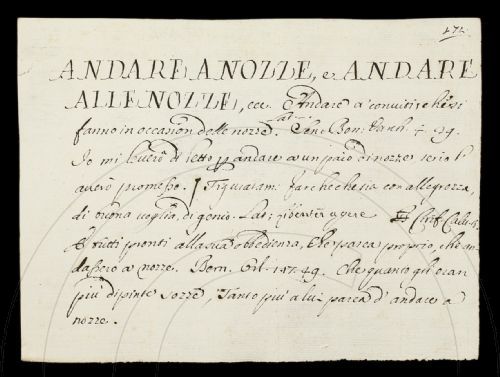 474.
ANDARE A NOZZE, e ANDARE
ALLE NOZZE, ecc. Andare a' conviti, che si
fanno in occasion delle nozze. Lat. Bern.
Io mi leverò di letto p andare a un paio di nozze se io l'
avessi promesso. Figuratam. far checchesia con allegrezza,
di buona voglia, di genio. Lat. libenter agere
E tutti pronti alla sua obbedienza, Che parea proprio, che an
dassero a nozze. Bern. Orl. 1. 47. 49. Che quanto gli eran
più dipinte sozze, Tanto più a lui parea d' andare a
nozze.